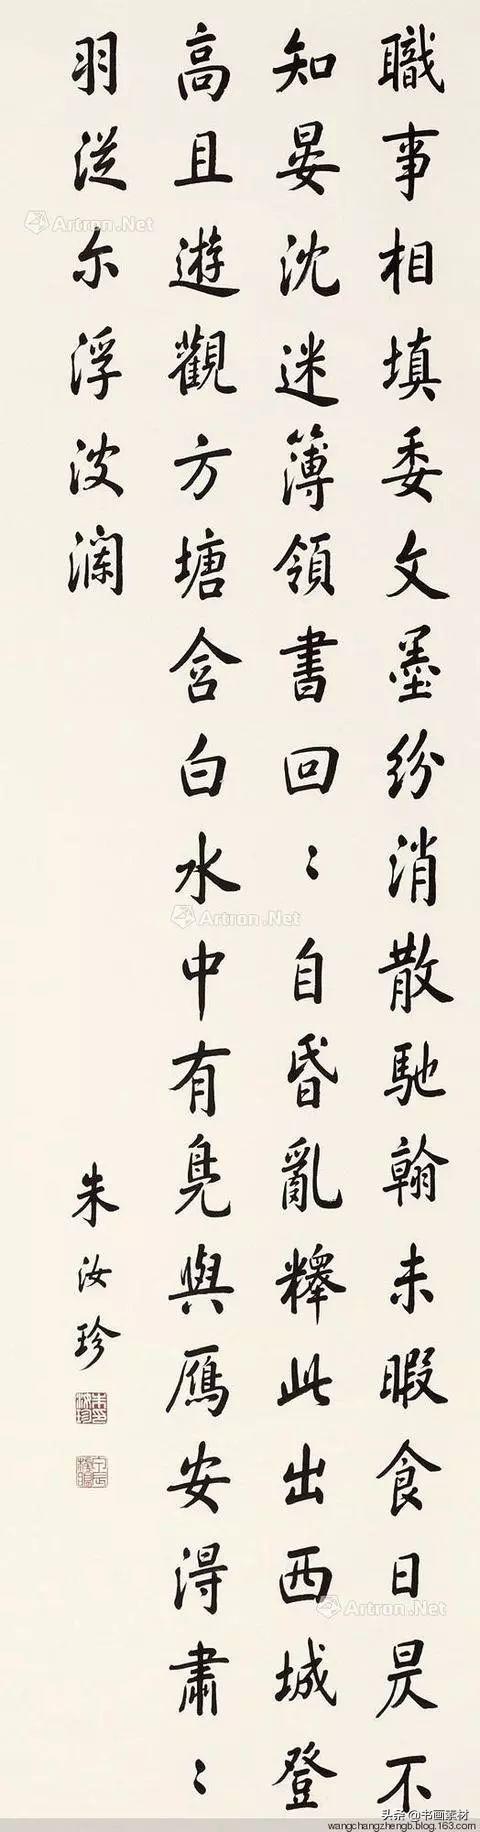 職事相填委文墨紛消散馳翰未暇食日昃不
知晏沈迷簿領書回〻自昏亂釋此出西城登
高且遊觀方塘含白水中有鳧與雁安得肅〻
羽從尔浮波瀾
朱汝珍
Artron.Net
Artron.Net
Artron.Net
头条 @书画素材
wangchangzhengb.blog.163.com